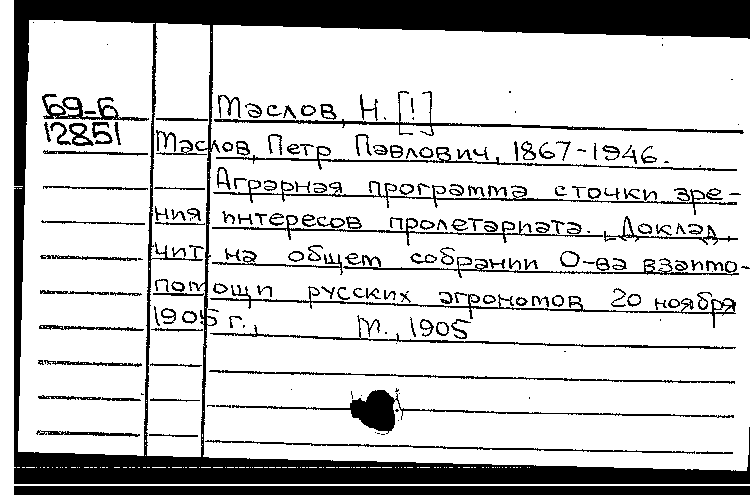 Б9-6 Маслов, Н. [!]
12851 Маслов, Петр Павлович, 1867-1946.
Аграрная программа с точки зре-
ния интересов пролетариата. Доклад,
чит. на общем собрании О-ва взаимо-
помощи русских агрономов 20 ноября
1905 г., М., 1905